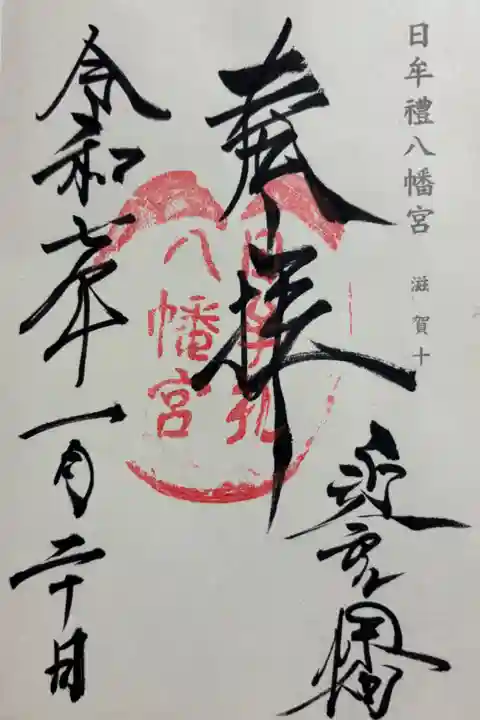 日牟禮八幡宮 滋賀十
奉拝
近江八幡
日牟礼
八幡宮
令和七年一月二十日